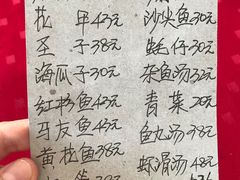 花甲43元 沙尖鱼30元
圣子38元 蚝仔30元
海瓜子30元 杂鱼汤32元
红杉鱼43元 青菜20元
马友鱼43元 鱼丸汤38元
黄花鱼38元 虾滑汤48元